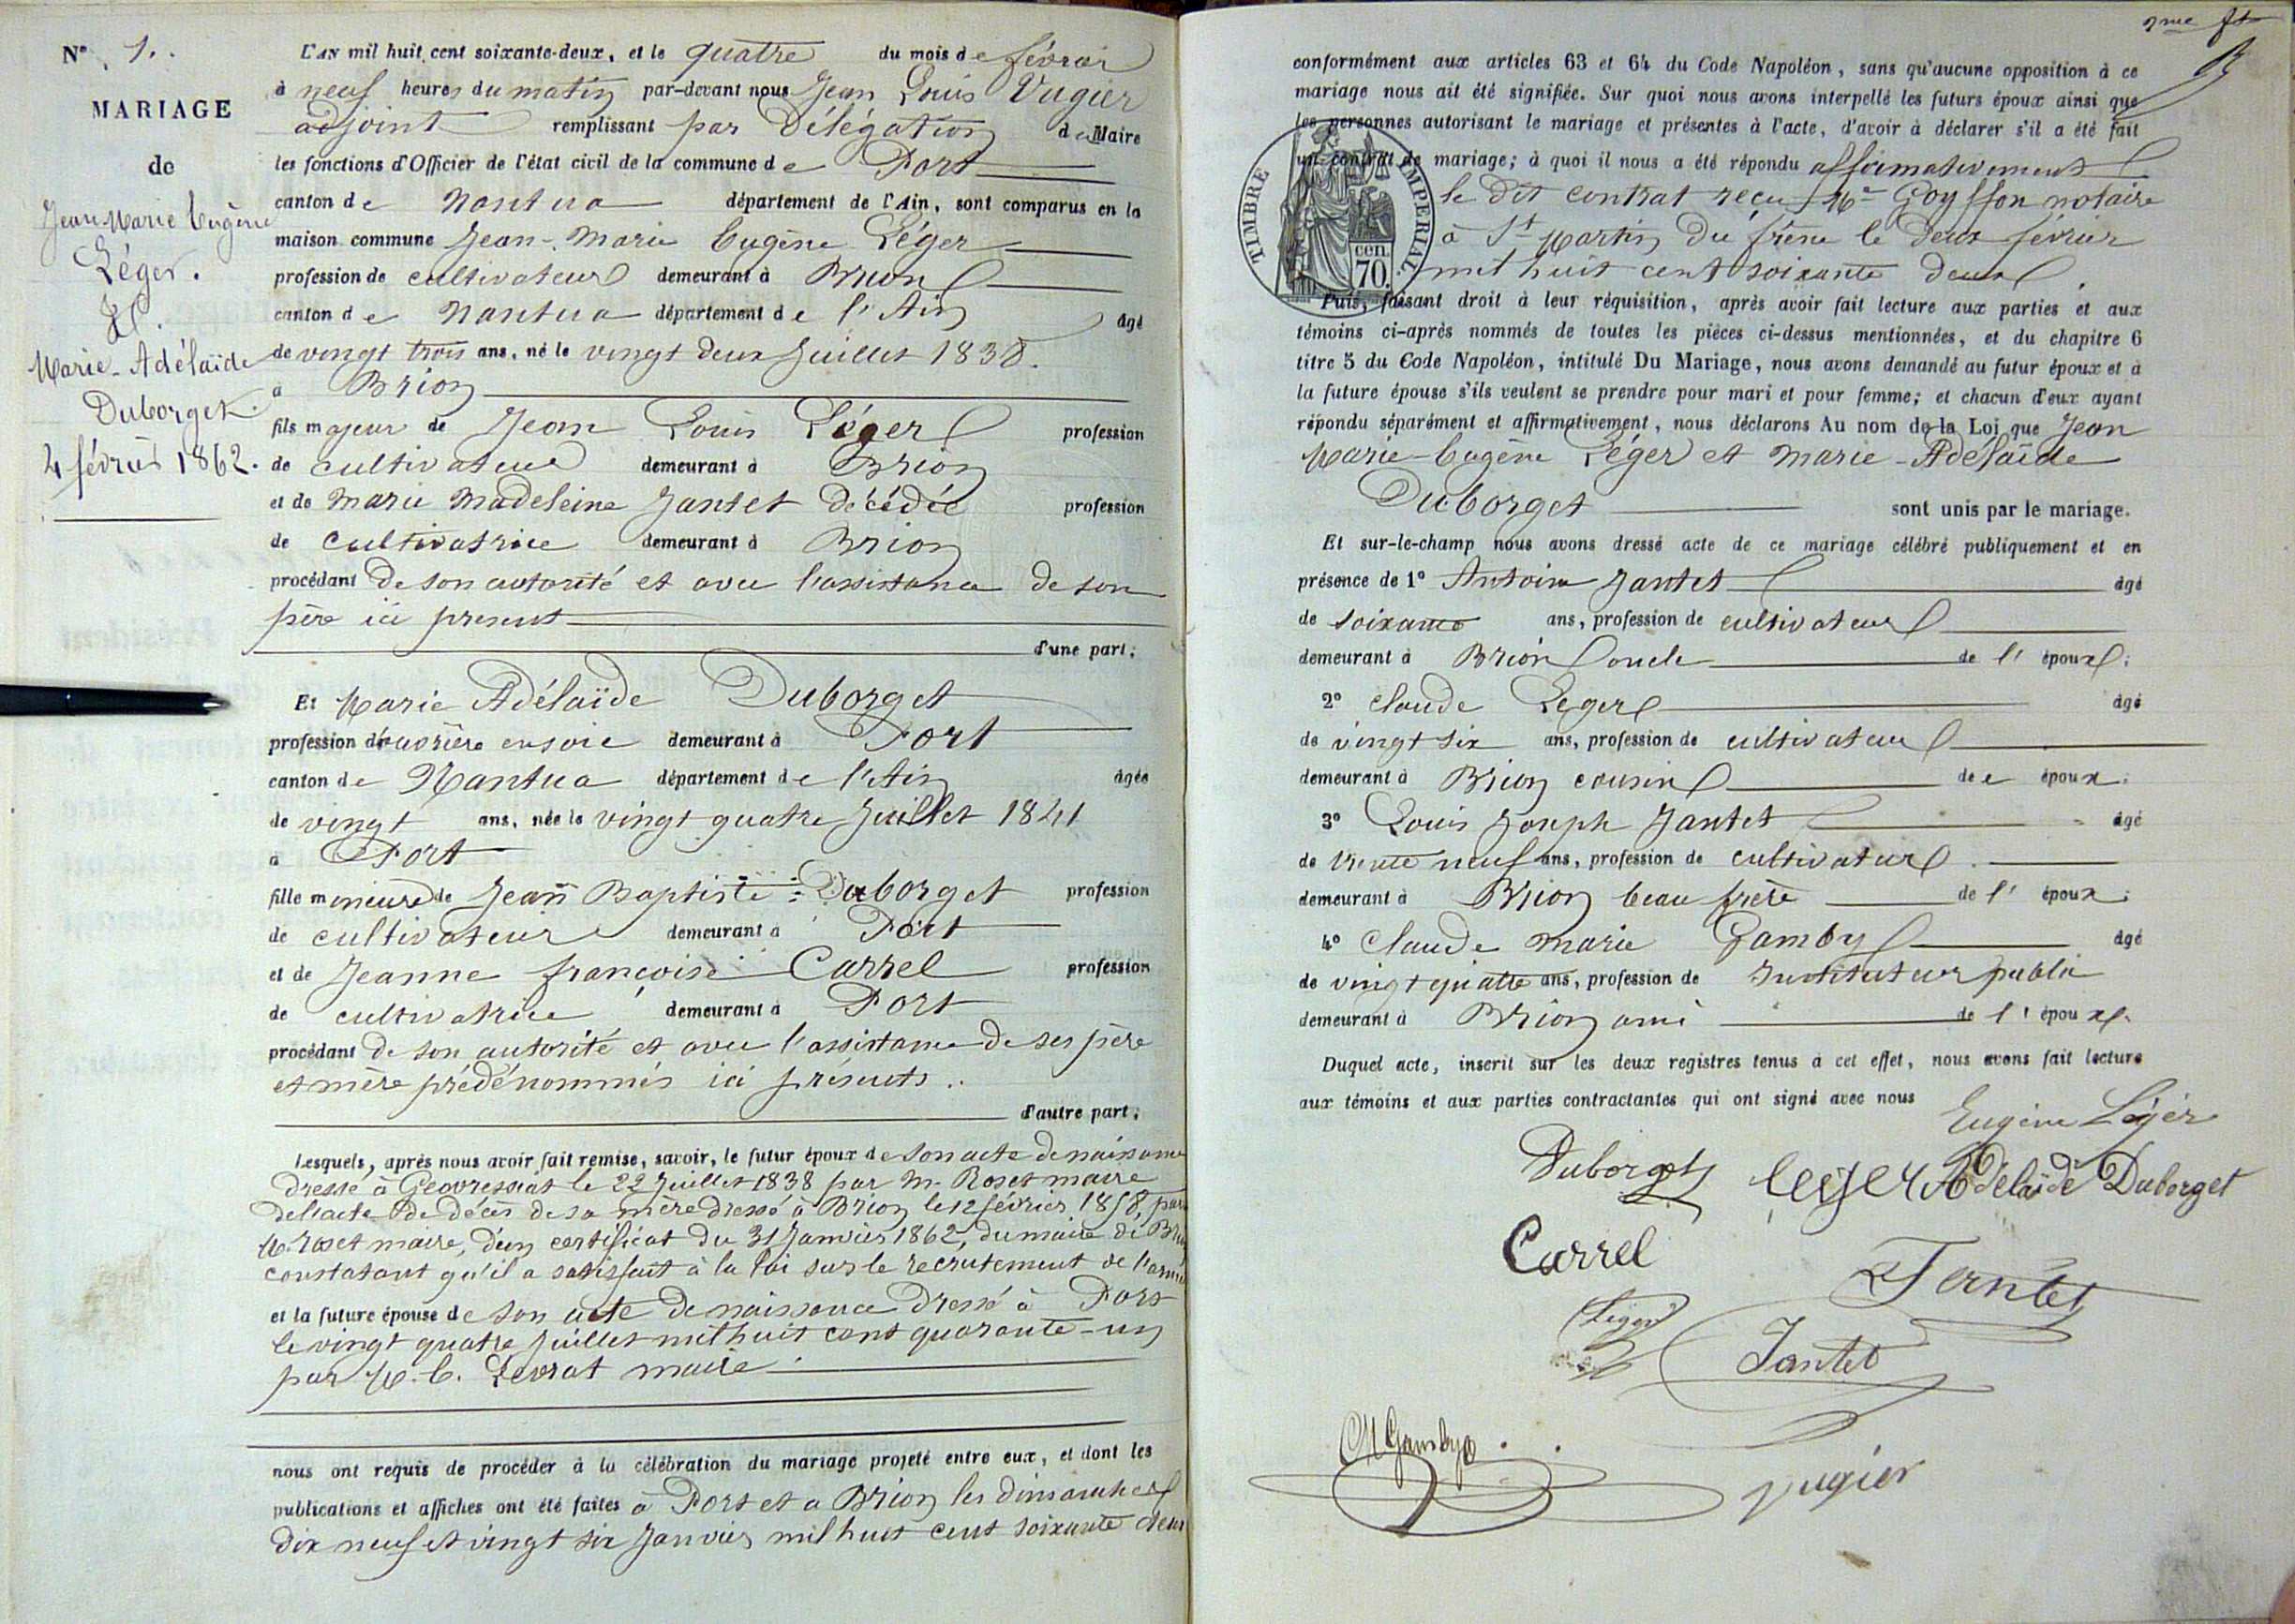 N° 1.
MARIAGE
de
Jean Marie Eugène
Léger.
Et.
Marie-Adélaïde
Duborget.
4 février 1862.
L'AN mil huit cent soixante-deux, et le quatre du mois de février
à neuf heures du matin par-devant nous Jean Louis Vugier
adjoint remplissant par Délégation du Maire
les fonctions d'Officier de l'état civil de la commune de Port
canton de Nantua département de l'Ain, sont comparus en la
maison commune Jean-Marie Eugène Léger
profession de cultivateur demeurant à Brion
canton de Nantua département de l'Ain âgé
de vingt trois ans, né le vingt deux Juillet 1838.
à Brion
fils majeur de Jean Louis Léger profession
de cultivateur demeurant à Brion
et de Marie Madeleine Jantet décédée profession
de cultivatrice demeurant à Brion
procédant de son autorité et avec l'assistance de son
père ici présent
d'une part;
Et Marie Adélaïde Duborget
profession d'ouvrière en soie demeurant à Port
canton de Nantua département de l'Ain âgée
de vingt ans, née le vingt quatre Juillet 1841
à Port
fille mineure de Jean Baptiste Duborget profession
de cultivateur demeurant à Port
et de Jeanne françoise Carrel profession
de cultivatrice demeurant à Port
procédant de son autorité et avec l'assistance de ses père
et mère prédénommés ici présents..
d'autre part;
Lesquels, après nous avoir fait remise, savoir, le futur époux de son acte de naissance
dressé à Géovressiat le 22 Juillet 1838 par M. Roset maire
de l'acte de décès de sa mère dressé à Brion le 12 février 1858, par
M. Roset maire, d'un certificat du 31 Janvier 1862, du maire de
constatant qu'il a satisfait à la loi sur le recrutement de l'armée
et la future épouse de son acte de naissance dressé à Port
le vingt quatre Juillet mil huit cent quarante-un
par M. C. Levrat maire
nous ont requis de procéder à la célébration du mariage projeté entre eux, et dont les
publications et affiches ont été faites à Port et à Brion les dimanches
dix neuf et vingt six Janvier mil huit cent soixante deux
conformément aux articles 63 et 64 du Code Napoléon, sans qu'aucune opposition à ce
mariage nous ait été signifiée. Sur quoi nous avons interpellé les futurs époux ainsi que
les personnes autorisant le mariage et présentes à l'acte, d'avoir à déclarer s'il a été fait
un contrat de mariage; à quoi il nous a été répondu affirmativement
le dit contrat reçu Me Goyffon notaire
à St Martin du frêne le deux février
mil huit cent soixante deux
TIMBRE IMPERIAL.
cen.
70.
Puis, faisant droit à leur réquisition, après avoir fait lecture aux parties et aux
témoins ci-après nommés de toutes les pièces ci-dessus mentionnées, et du chapitre 6
titre 5 du Code Napoléon, intitulé Du Mariage, nous avons demandé au futur époux et à
la future épouse s'ils veulent se prendre pour mari et pour femme; et chacun d'eux ayant
répondu séparément et affirmativement, nous déclarons Au nom de la Loi que Jean
Marie-Eugène Léger et Marie-Adélaïde
Duborget sont unis par le mariage.
Et sur-le-champ nous avons dressé acte de ce mariage célébré publiquement et en
présence de 1° Antoine Jantet âgé
de soixante ans, profession de cultivateur
demeurant à Brion oncle de l' époux;
2° Claude Leger âgé
de vingt six ans, profession de cultivateur
demeurant à Brion cousin de époux;
3° Louis Joseph Jantet âgé
de trente neuf ans, profession de cultivateur
demeurant à Brion beau frère de l' époux;
4° Claude Marie Gamby âgé
de vingt quatre ans, profession de Instituteur public
demeurant à Brion ami de l' époux.
Duquel acte, inscrit sur les deux registres tenus à cet effet, nous avons fait lecture
aux témoins et aux parties contractantes qui ont signé avec nous
Eugène Légér
Duborget Leger Adélaïde Duborget
Carrel
Léger
Jantet
CM Gamby
Vugier